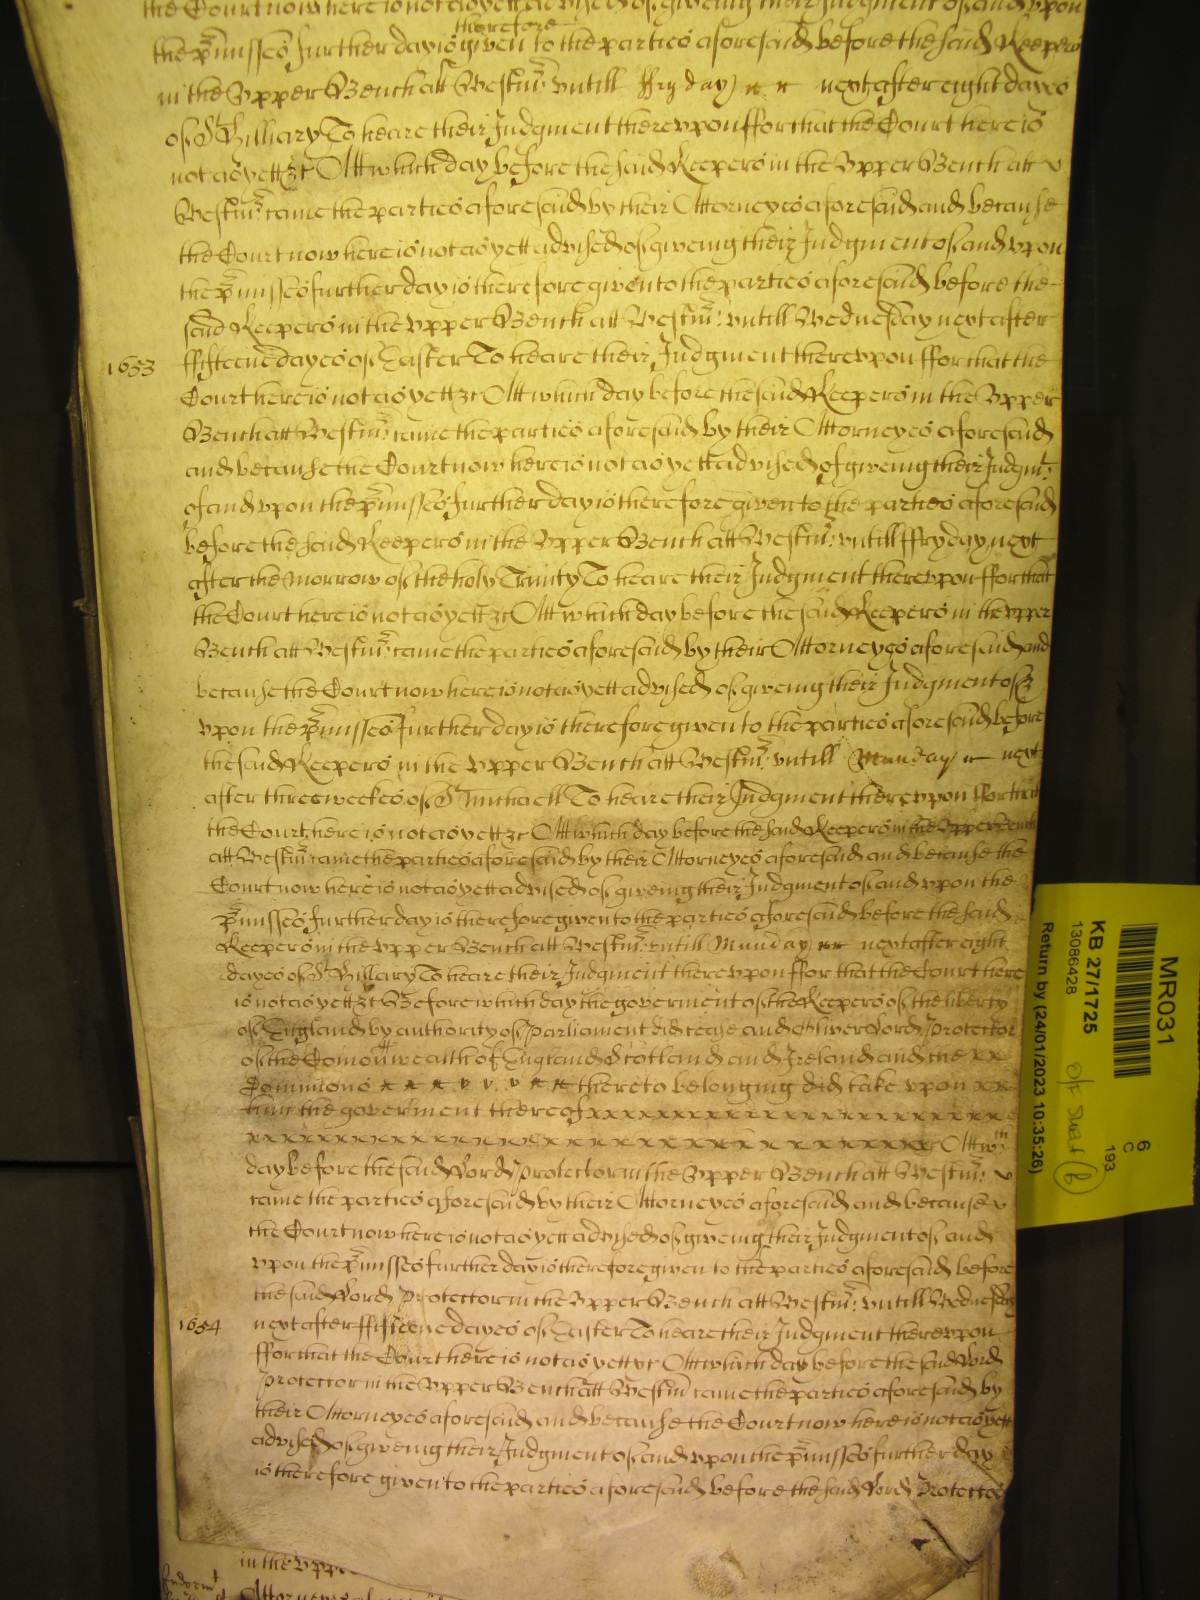 the Court now here is not as yett advised of giveing their Judgment of and upon
therefore
the p̄misses further day is given to the parties aforesaid before the said Keepers
in the Upper Bench att Westm̄: untill ffryday next after eight dayes
of St Hillary To heare their Judgment thereupon ffor that the Court here is
not as yett &c Att which day before the said Keepers in the Upper Bench att
Westm̄: came the parties aforesaid by their Attorneyes aforesaid and because
the Court now here is not as yett advised of giveing their Judgment of and upon
the p̄misses further day is therefore given to the parties aforesaid before the
said Keepers in the Upper Bench att Westm̄: untill Wednesday next after
1653
ffifteene dayes of Easter To heare their Judgment thereupon ffor that the
Court here is not as yett &c Att which day before the said Keepers in the Upper
Bench att Westm̄: came the parties aforesaid by their Attorneyes aforesaid
and because the Court now here is not as yett advised of giveing their Judgmt:
of and upon the p̄misses further day is therefore given to the parties aforesaid
before the said Keepers in the Upper Bench att Westm̄: untill ffryday next
after the Morrow of the holy Trinity To heare their Judgment thereupon ffor that
the Court here is not as yett &c Att which day before the said Keepers in the upper
Bench att Westm̄: came the parties aforesaid by their Attorneyes aforesaid and
because the Court now here is not as yett advised of giveing their Judgment of &
upon the p̄misses further day is therefore given to the parties aforesaid before
the said Keepers in the Upper Bench att Westm̄: untill Munday next
after three weekes of St Michaell To heare their Judgment thereupon ffor that
the Court here is not as yett &c Att which day before the said Keepers in the Upper Bench
att Westm̄: came the parties aforesaid by their Attorneyes aforesaid and because the
Court now here is not as yett advised of giveing their Judgment of and upon the
p̄misses further day is therefore given to the parties aforesaid before the said
Keepers in the Upper Bench att Westm̄: untill Munday next after eight
dayes of St Hillary To heare their Judgment thereupon ffor that the Court here
is not as yett &c Before which day the goverment of the Keepers of the liberty
of England by authority of Parliament did cease and Oliver Lord Protector
of the Com̄onwealth of England Scotland and Ireland and the x x
Dominions thereto belonging did take upon x x
him the goverment thereof x x x x x x x x x x x x x x x x x x x x
x x x x x x x x x x x x x x x x x x x x x x x x x x Att wch
day before the said Lord Protector in the Upper Bench att Westm̄:
came the parties aforesaid by their Attorneyes aforesaid and because
the Court now here is not as yett advised of giveing their Judgment of and
upon the p̄misses further day is therefore given to the parties aforesaid before
the said Lord Protector in the Upper Bench att Westm̄: untill Wednesday
1654
next after ffifteene dayes of Easter To heare their Judgment thereupon
ffor that the Court here is not as yett &c Att which day before the said Lord
Protector in the Upper Bench att Westm̄ came the parties aforesaid by
their Attorneyes aforesaid and because the Court now here is not as yett
advised of giveing their Judgment of and upon the p̄misses further day
is therefore given to the parties aforesaid before the said Lord Protector
in the Upp
Attorneyes
MR031
KB 27/1725
13086428
Return by (24/01/2023 10:35:26)
6
C
193